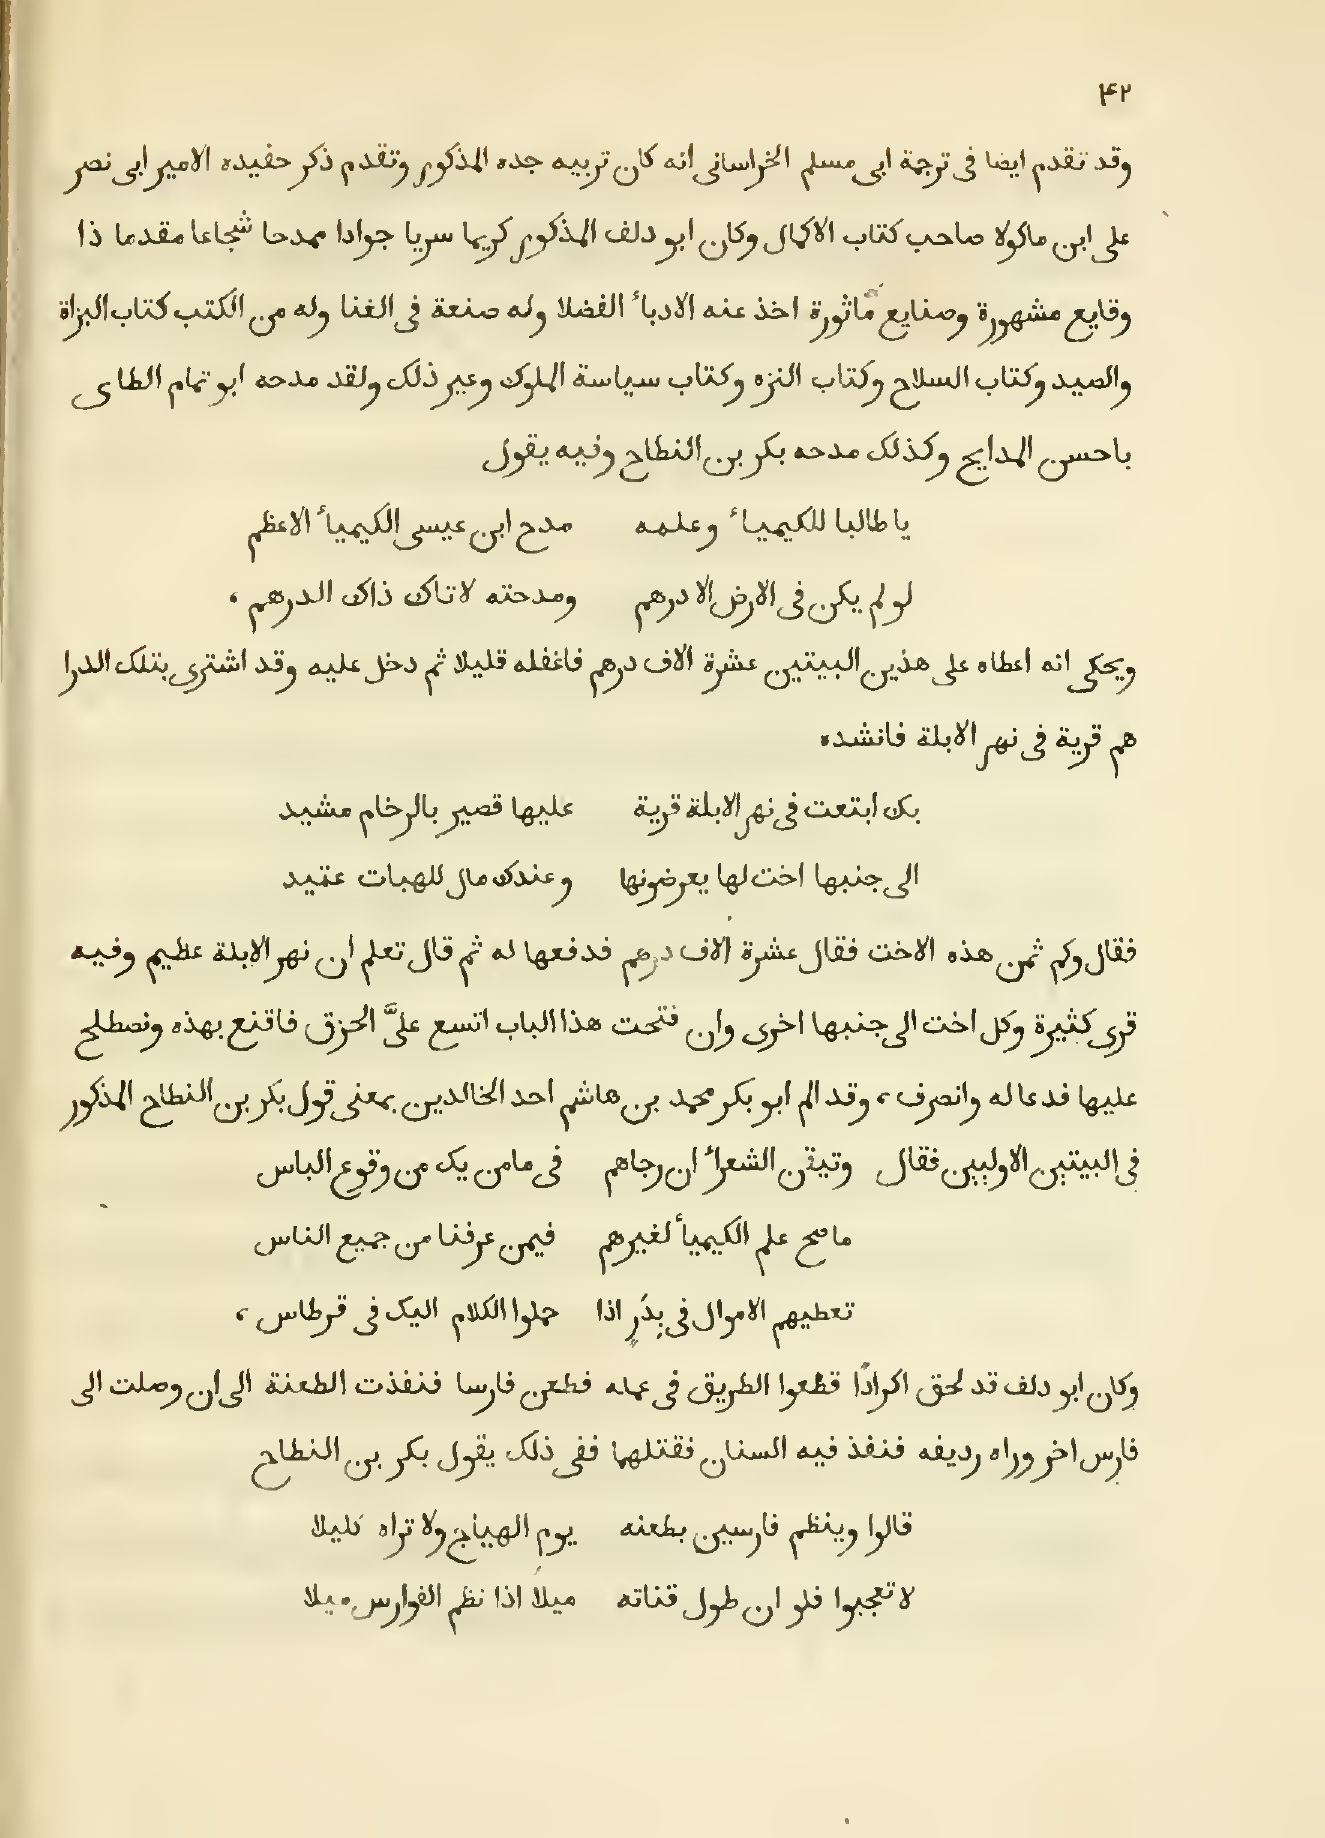 ۴۲
وقد تقدم ايضا فى ترجمة ابى مسلم الخراسانى انه كان تربيه جده المذكور وتقدم ذكر حفيده الامير ابى نصر
على ابن ماكولا صاحب كتاب الاكمال وكان ابو دلف المذكور كريما سريا جوادا ممدحا شجاعا مقدما ذا
وقايع مشهورة وصنايع مأثورة اخذ عنه الادباء الفضلا وله صنعة فى الغنا وله من الكتب كتاب البزاة
والصيد وكتاب السلاح وكتاب النزه وكتاب سياسة الملوك وغير ذلك ولقد مدحه ابو تمام الطاى
باحسن المدايح وكذلك مدحه بكر بن النطاح وفيه يقول
يا طالبا للكيمياء وعلمه مدح ابن عيسى الكيمياء الاعظم
لو لم يكن فى الارض الا درهم ومدحته لاتاك ذاك الدرهم ،
ويحكى انه اعطاه على هذين البيتين عشرة الاف درهم فاغفله قليلا ثم دخل عليه وقد اشترى بتلك الدرا
هم قرية فى نهر الابلة فانشده
بك ابتعت فى نهر الابلة قرية عليها قصير بالرخام مشيد
الى جنبها اخت لها يعرضونها وعندك مال للهبات عتيد
فقال وكم ثمن هذه الاخت فقال عشرة الاف درهم فدفعها له ثم قال تعلم ان نهر الابلة عظيم وفيه
قرى كثيرة وكل اخت الى جنبها اخرى وان فتحت هذا الباب اتسع علىَّ الخزق فاقنع بهذه ونصطلح
عليها فدعا له وانصرف ، وقد الم ابو بكر محمد بن هاشم احد الخالدين بمعنى قول بكر بن النطاح المذكور
فى البيتين الاوليين فقال وتيقن الشعراء ان رجاهم فى مامن بك من وقوع الباس
ما صح علم الكيمياء لغيرهم فيمن عرفنا من جميع الناس
تعطيهم الاموال فى بِدَرٍ اذا حملوا الكلام اليك فى قرطاس ،
وكان ابو دلف قد لحق اكرادًا قطعوا الطريق فى عمله فطعن فارسا فنفذت الطعنة الى ان وصلت الى
فارس اخر وراه رديفه فنفذ فيه السنان فقتلهما ففى ذلك يقول بكر بن النطاح
قالوا وينظم فارسين بطعنه يوم الهياج ولا تراه كليلا
لا تعجبوا فلو ان طول قناته ميلا اذا نظم الفوارس ميلا